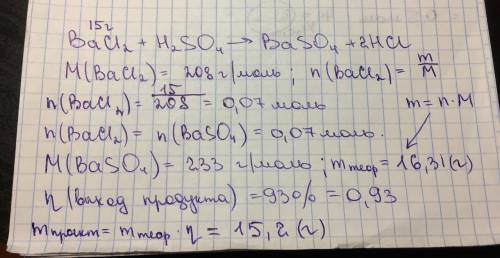 15г
BaCl₂ + H₂SO₄ → BaSO₄ + 2HCl
M(BaCl₂) = 208 г/моль ; n(BaCl₂) = m/M
n(BaCl₂) = 15/208 = 0,07 моль
m = n·M
n(BaCl₂) = n(BaSO₄) = 0,07 моль.
M(BaSO₄) = 233 г/моль ; mтеор = 16,31 (г)
η (выход продукта) = 93% = 0,93
mпракт = mтеор · η = 15,2 (г)